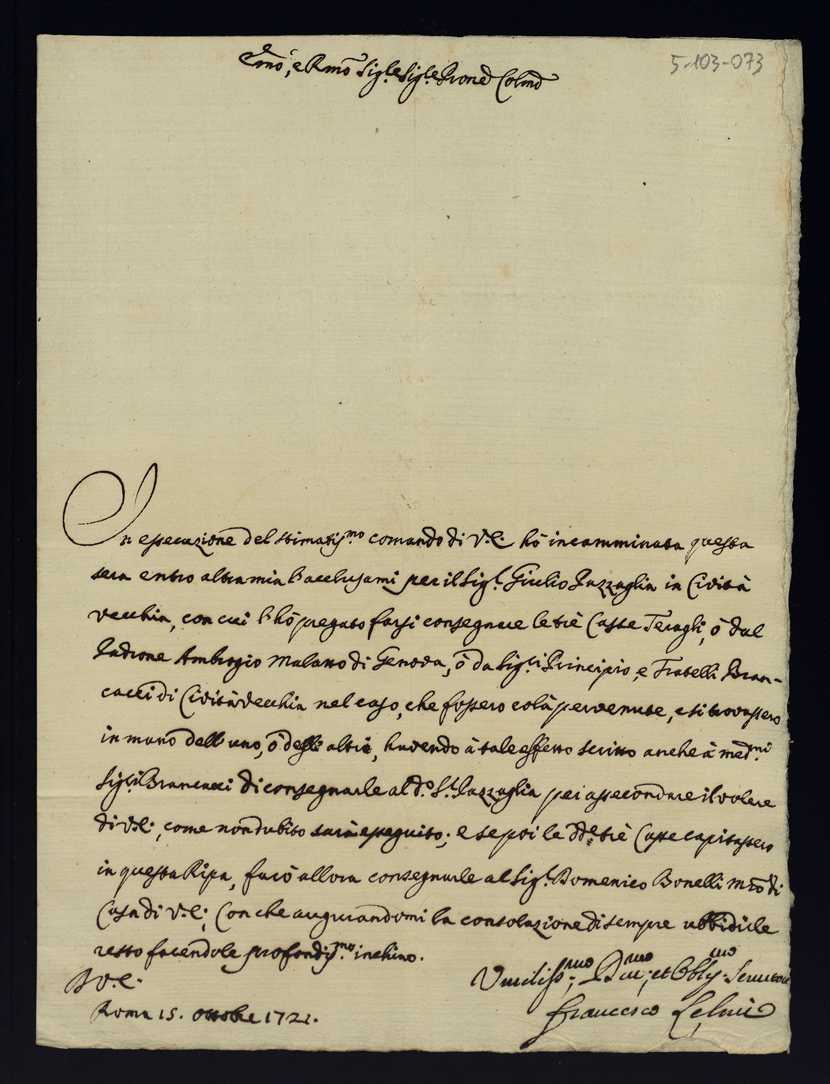 5-103-073
Emo, e Rmo Sig.re Sig.re Prone Colmo
In essecuzione del stimatiss.mo comando di V.E. hò incamminata questa
sera entro altra mia per il Sig.r Giulio Pazzaglia in Cività
vecchia, con cui l'hò pregato farsi consegnare le trè Casse Teragli, ò dal
Padrone Ambrogio Malatto di Genova, ò da Sig.ri Principio, e Fratelli Bran-
cacci di Civitàvecchia nel caso, che fossero colà pervenute, e si trovassero
in mano dell'uno, ò degli altri, havendo à tale effetto scritto anche à med.mi
Sig.ri Brancacci di consegnarle al d.o S.r Pazzaglia per assecondare il volere
di V.E., come non dubito sarà esseguito; e se poi le dd.e trè Casse capitassero
in questa Ripa, farò allora consegnarle al Sig.r Domenico Bonelli Mro di
Casa di V.E.; Con che augurandomi la consolazione di sempre ubbidirle
resto facendole profondiss.mo inchino.
D V.E.
Umiliss.mo, Dmo, et Obliss.mo Servitore
Roma 15. Ottobre 1721.
Francesco